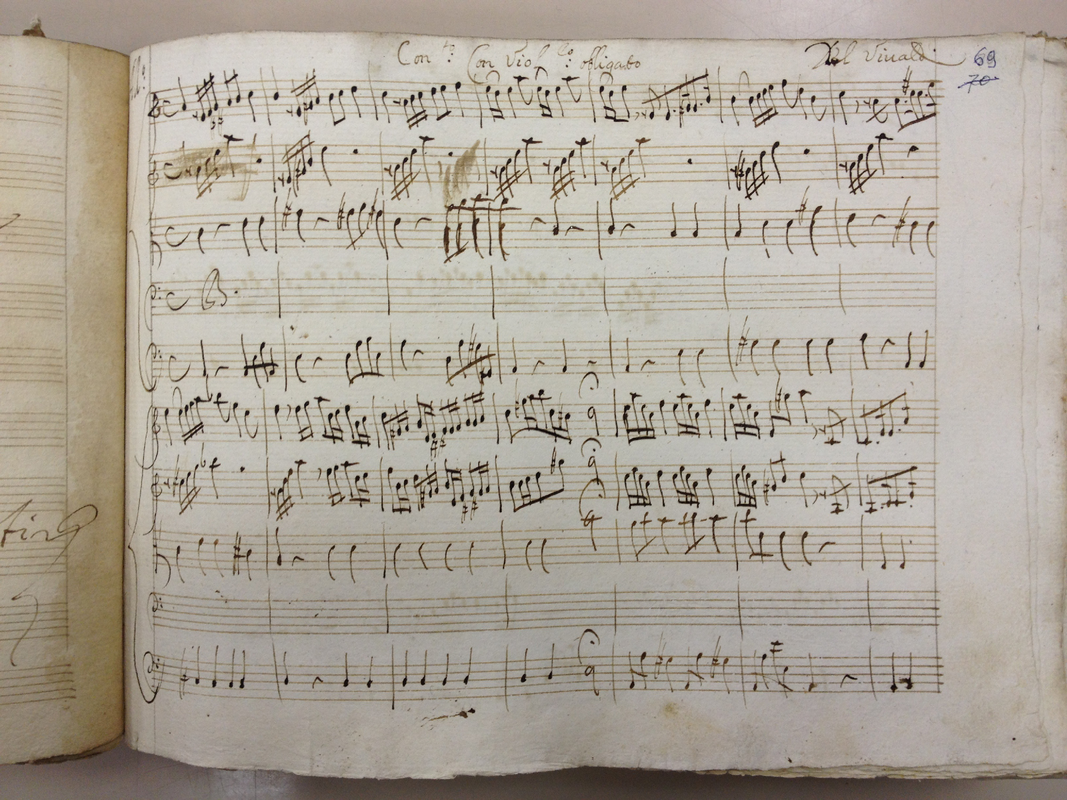 Con.to Con Viol.lo obligato Del Vivaldi 69
70
B.